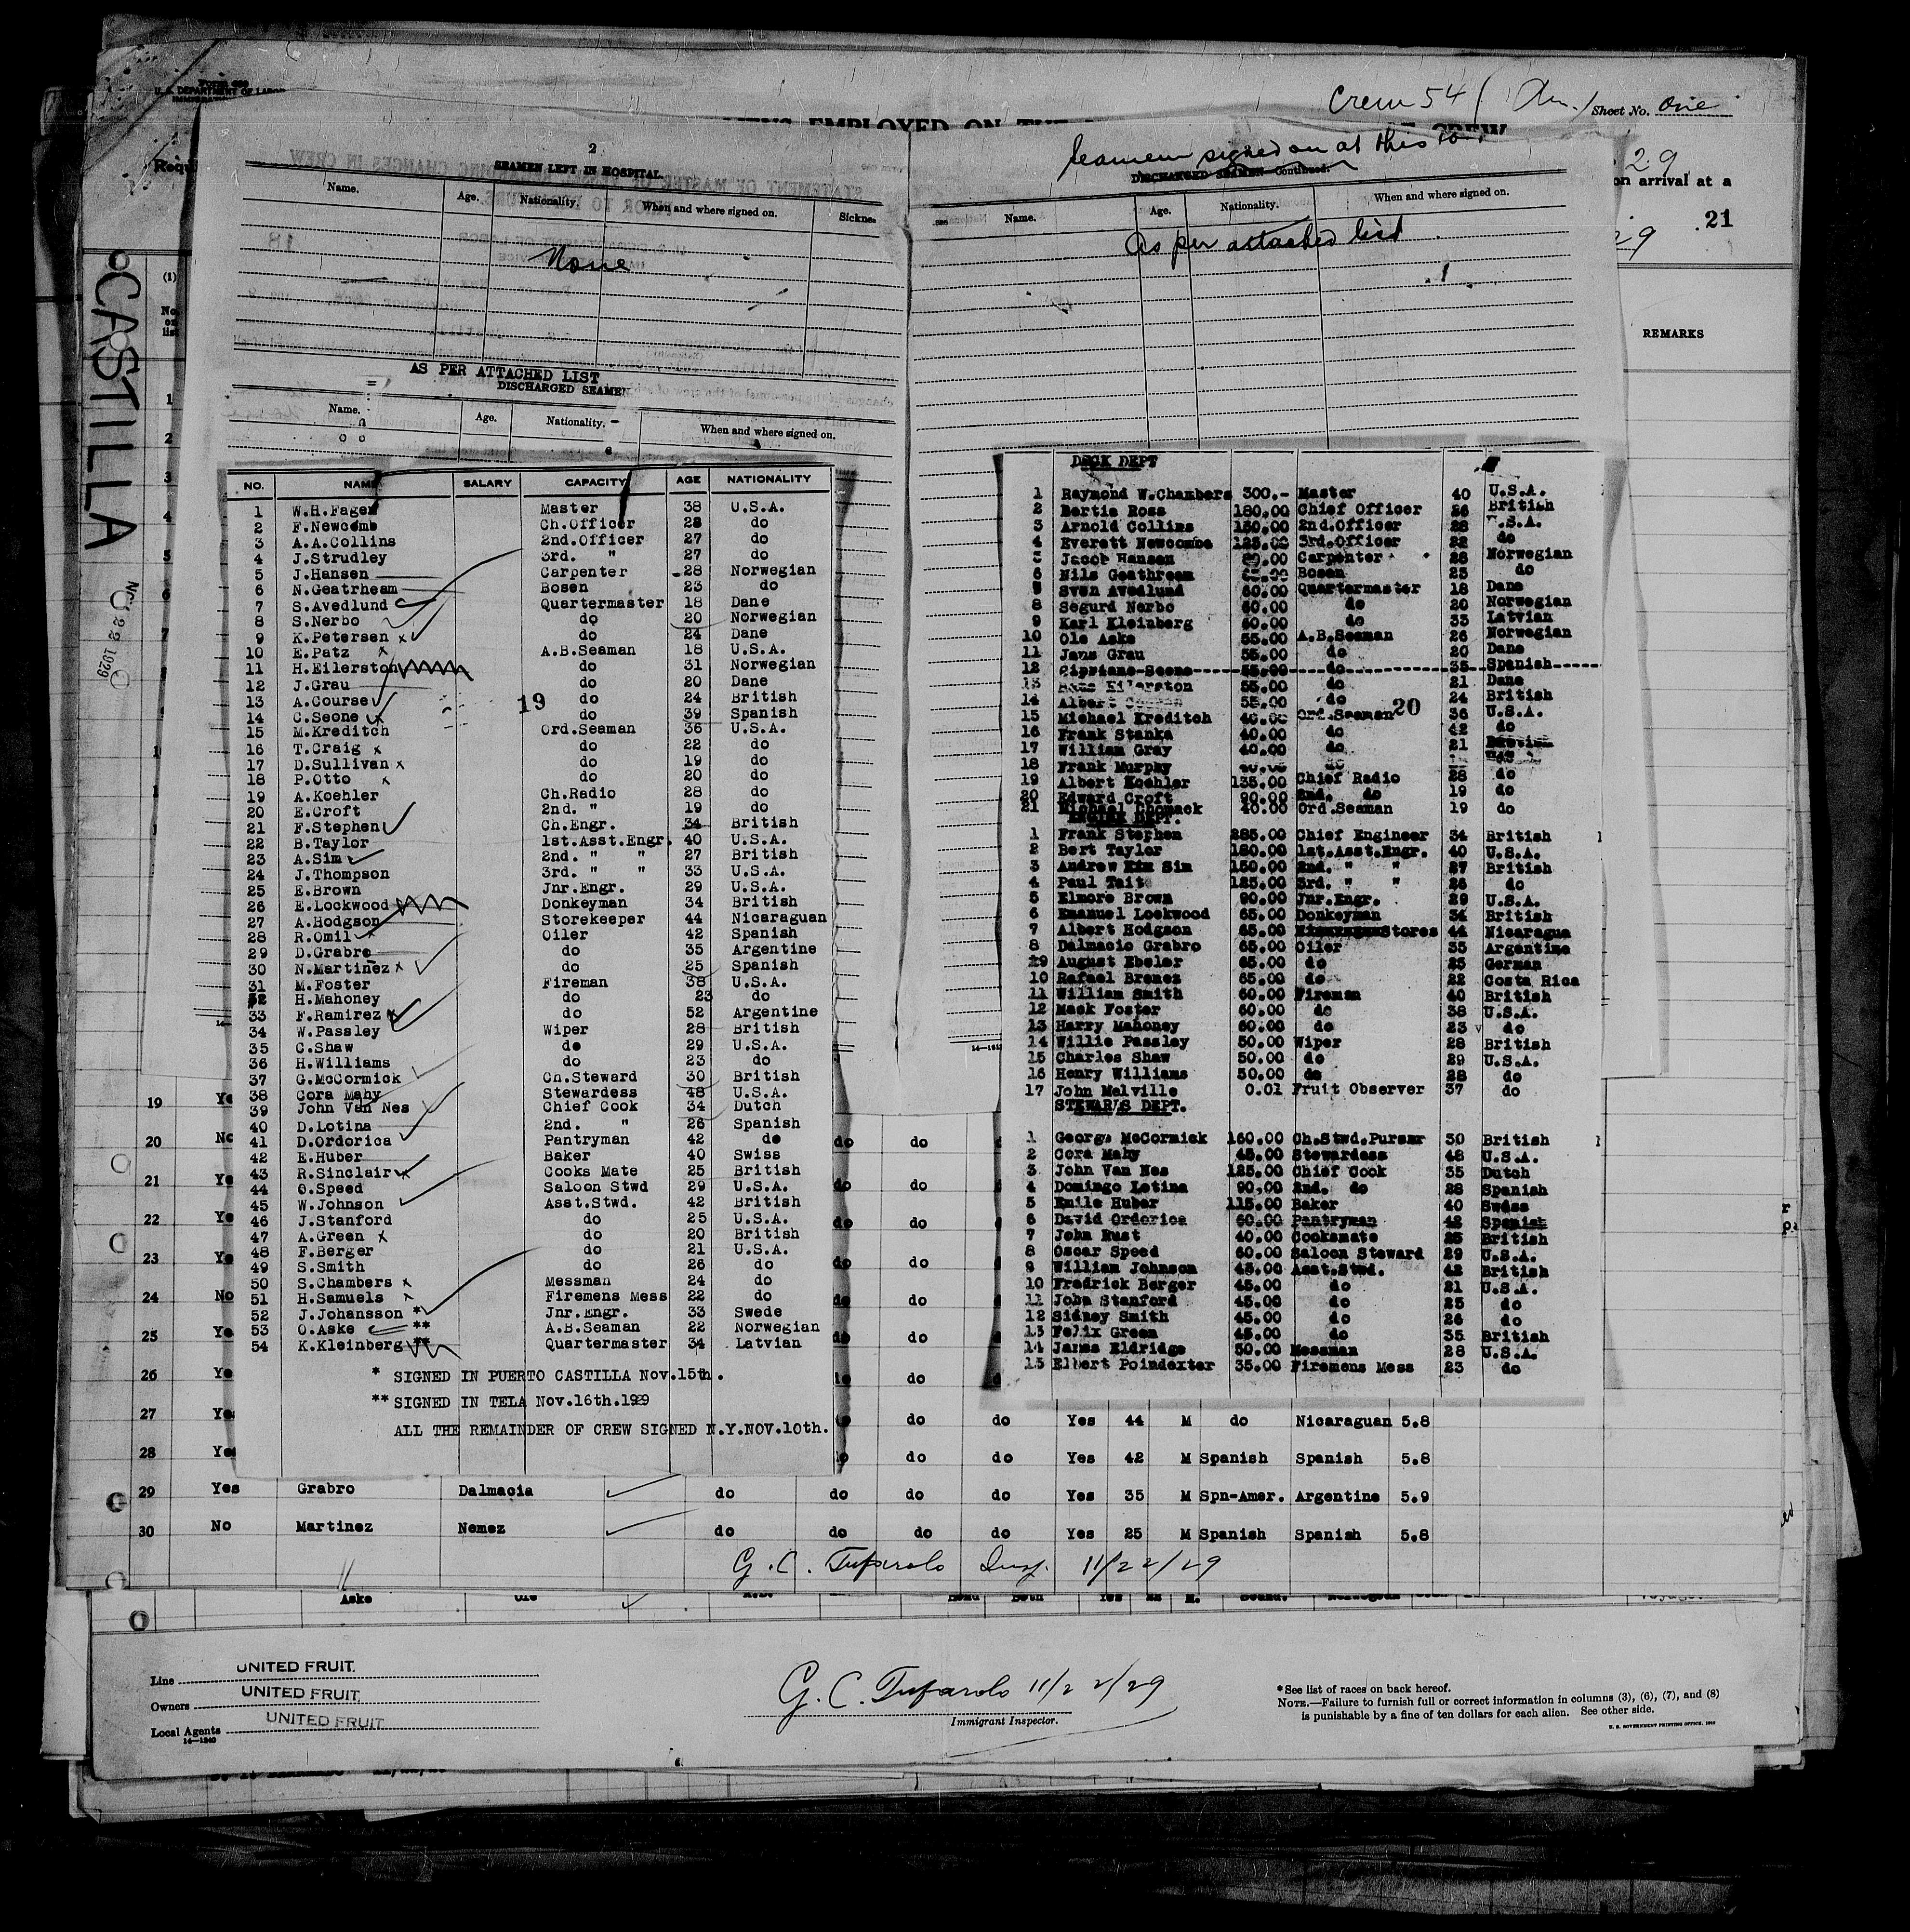 FORM 689
U. S. DEPARTMENT OF LABOR
Crew 54 (Am.) Sheet No. One
EMPLOYED ON THE
CREW
29
on arrival at a
21
29
REMARKS
CASTILLA
Nov 22 1929
2
SEAMEN LEFT IN HOSPITAL.
Name. Age. Nationality. When and where signed on. Sickne
None
AS PER ATTACHED LIST
DISCHARGED SEAMEN
Name. Age. Nationality. When and where signed on.
Seamen signed on at this
DISCHARGED SEAMEN—Continued.
Name. Age. Nationality. When and where signed on.
As per attached list
NO. NAME SALARY CAPACITY AGE NATIONALITY
1 W.H.Fagen Master 38 U.S.A.
2 F.Newcomb Ch.Officer 28 do
3 A.A.Collins 2nd.Officer 27 do
4 J.Strudley 3rd. " 27 do
5 J.Hansen Carpenter 28 Norwegian
6 N.Geatrheam Bosen 23 do
7 S.Avedlund Quartermaster 18 Dane
8 S.Nerbo do 20 Norwegian
9 K.Petersen x do 24 Dane
10 E.Patz x A.B.Seaman 18 U.S.A.
11 H.Eilerston do 31 Norwegian
12 J.Grau do 20 Dane
13 A.Course do 24 British
14 C.Seone x do 39 Spanish
15 M.Kreditch Ord.Seaman 36 U.S.A.
16 T.Craig x do 22 do
17 D.Sullivan x do 19 do
18 P.Otto x do 20 do
19 A.Koehler Ch.Radio 28 do
20 E.Croft 2nd. " 19 do
21 F.Stephen Ch.Engr. 34 British
22 B.Taylor 1st.Asst.Engr. 40 U.S.A.
23 A.Sim 2nd. " " 27 British
24 J.Thompson 3rd. " " 33 U.S.A.
25 E.Brown Jnr.Engr. 29 U.S.A.
26 E.Lockwood Donkeyman 34 British
27 A.Hodgson Storekeeper 44 Nicaraguan
28 R.Omil x Oiler 42 Spanish
29 D.Grabro do 35 Argentine
30 N.Martinez x do 25 Spanish
31 M.Foster Fireman 38 U.S.A.
32 H.Mahoney do 23 do
33 F.Ramirez x do 52 Argentine
34 W.Passley Wiper 28 British
35 C.Shaw do 29 U.S.A.
36 H.Williams do 23 do
37 G.McCormick Ch.Steward 30 British
38 Cora Mahy Stewardess 48 U.S.A.
39 John Van Nes Chief Cook 34 Dutch
40 D.Lotina 2nd. " 26 Spanish
41 D.Ordorica Pantryman 42 do
42 E.Huber Baker 40 Swiss
43 R.Sinclair x Cooks Mate 25 British
44 O.Speed Saloon Stwd 29 U.S.A.
45 W.Johnson Asst.Stwd. 42 British
46 J.Stanford do 25 U.S.A.
47 A.Green x do 20 British
48 F.Berger do 21 U.S.A.
49 S.Smith do 26 do
50 S.Chambers x Messman 24 do
51 H.Samuels x Firemens Mess 22 do
52 J.Johansson * Jnr.Engr. 33 Swede
53 O.Aske ** A.B.Seaman 22 Norwegian
54 K.Kleinberg ** Quartermaster 34 Latvian
* SIGNED IN PUERTO CASTILLA Nov.15th.
** SIGNED IN TELA Nov.16th.1929
ALL THE REMAINDER OF CREW SIGNED N.Y.NOV.10th.
19
DECK DEPT
1 Raymond W.Chambers 300.- Master 40 U.S.A.
2 Bertie Ross 180.00 Chief Officer 26 British
3 Arnold Collins 150.00 2nd.Officer 28 U.S.A.
4 Everett Newcombe 125.00 3rd.Officer 22 do
5 Jacob Hansen Carpenter 28 Norwegian
6 Nils Geathream Bosen 23 do
Sven Avedlund 60.00 Quartermaster 18 Dane
8 Segurd Nerbo 60.00 do 20 Norwegian
9 Karl Kleinberg 60.00 do 33 Latvian
10 Ole Aske 55.00 A.B.Seaman 26 Norwegian
11 Jans Grau 55.00 do 20 Dane
12 Cipriano-Seone 55.00 do 35 Spanish
13 Eilerston 55.00 do 21 Dane
14 Albert 55.00 do 24 British
15 Michael Kreditch 40.00 Ord.Seaman 36 U.S.A.
20
16 Frank Stanka 40.00 do 42 do
17 William Gray 40.00 do 21
18 Frank Murphy 40.00 do
19 Albert Koehler 135.00 Chief Radio 28 do
20 Edward Croft 90.00 2nd. do 19 do
21 Michael Chomack 40.00 Ord.Seaman 19 do
ENGINE DEPT.
1 Frank Stephen 285.00 Chief Engineer 34 British
2 Bert Taylor 180.00 1st.Asst.Engr. 40 U.S.A.
3 Andrew Kim Sim 150.00 2nd. " " 27 British
4 Paul Tait 125.00 3rd. " " 26 do
5 Elmore Brown 90.00 Jnr.Engr. 29 U.S.A.
6 Emanuel Lockwood 65.00 Donkeyman 34 British
7 Albert Hodgson 65.00 Stores 44 Nicaragua
8 Dalmacio Grabro 65.00 Oiler 35 Argentine
29 August Ebeler 65.00 do 25 German
10 Rafael Brenes 65.00 do 22 Costa Rica
11 William Smith 60.00 Fireman 40 British
12 Mack Foster 60.00 do 38 U.S.A.
13 Harry Mahoney 60.00 do 23 do
14 Willie Passley 50.00 Wiper 28 British
15 Charles Shaw 50.00 do 29 U.S.A.
16 Henry Williams 50.00 do 28 do
17 John Melville 0.01 Fruit Observer 37 do
STEWAR'S DEPT.
1 George McCormick 160.00 Ch.Stwd.Purser 30 British
2 Cora Mahy 45.00 Stewardess 48 U.S.A.
3 John Van Nes 125.00 Chief Cook 35 Dutch
4 Domingo Lotina 90.00 2nd. do 28 Spanish
5 Emile Huber 115.00 Baker 40 Swiss
6 David Orderica 60.00 Pantryman 42 Spanish
7 John Rust 40.00 Cooksmate 25 British
8 Oscar Speed 60.00 Saloon Steward 29 U.S.A.
9 William Johnson 45.00 Asst.Stwd. 42 British
10 Fredrick Berger 45.00 do 21 U.S.A.
11 John Stanford 45.00 do 25 do
12 Sidney Smith 45.00 do 26 do
13 Felix Green 45.00 do 35 British
14 James Eldridge 50.00 Messman 28 U.S.A.
15 Elbert Poindexter 35.00 Firemens Mess 23 do
do do Yes 44 M do Nicaraguan 5.8
do do Yes 42 M Spanish Spanish 5.8
29 Yes Grabro Dalmacia do do do do Yes 35 M Spn-Amer. Argentine 5.9
30 No Martinez Nemez do do do do Yes 25 M Spanish Spanish 5.8
G. C. Tufarolo Insp. 11/22/29
Aske Ole
Line UNITED FRUIT.
Owners UNITED FRUIT.
Local Agents UNITED FRUIT
14—1240
G. C. Tufarolo 11/22/29
Immigrant Inspector.
*See list of races on back hereof.
NOTE.—Failure to furnish full or correct information in columns (3), (6), (7), and (8)
is punishable by a fine of ten dollars for each alien. See other side.
U. S. GOVERNMENT PRINTING OFFICE